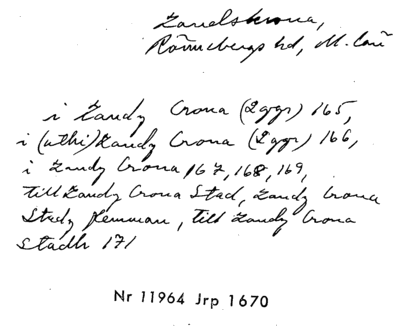 Landskrona,
Rönnebergs hd, M. län
i Landz Crona (2 ggr) 165,
i (uthi) Landz Crona (2 ggr) 166,
i Landz Crona 167, 168, 169,
till Landz Crona Stad, Landz Crona
Stadz, till Landz Crona
stadh 171
Nr 11964 Jrp 1670